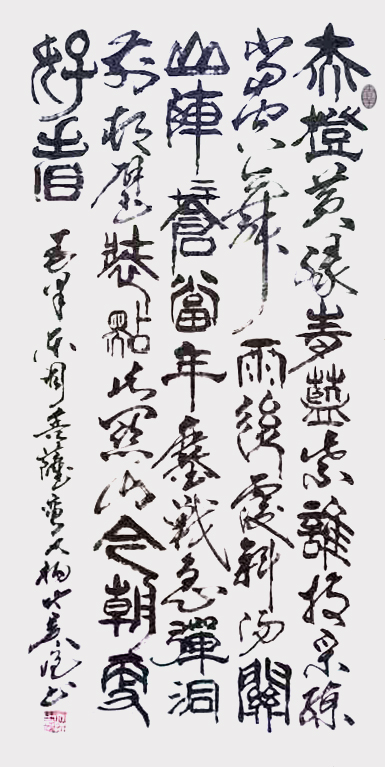 赤橙黃綠青藍紫誰持彩練
當空舞雨後復斜陽關
山陣〻蒼當年鏖戰急彈洞
前村壁裝點此關山今朝更
好看
毛澤東詞菩薩蠻大柏地